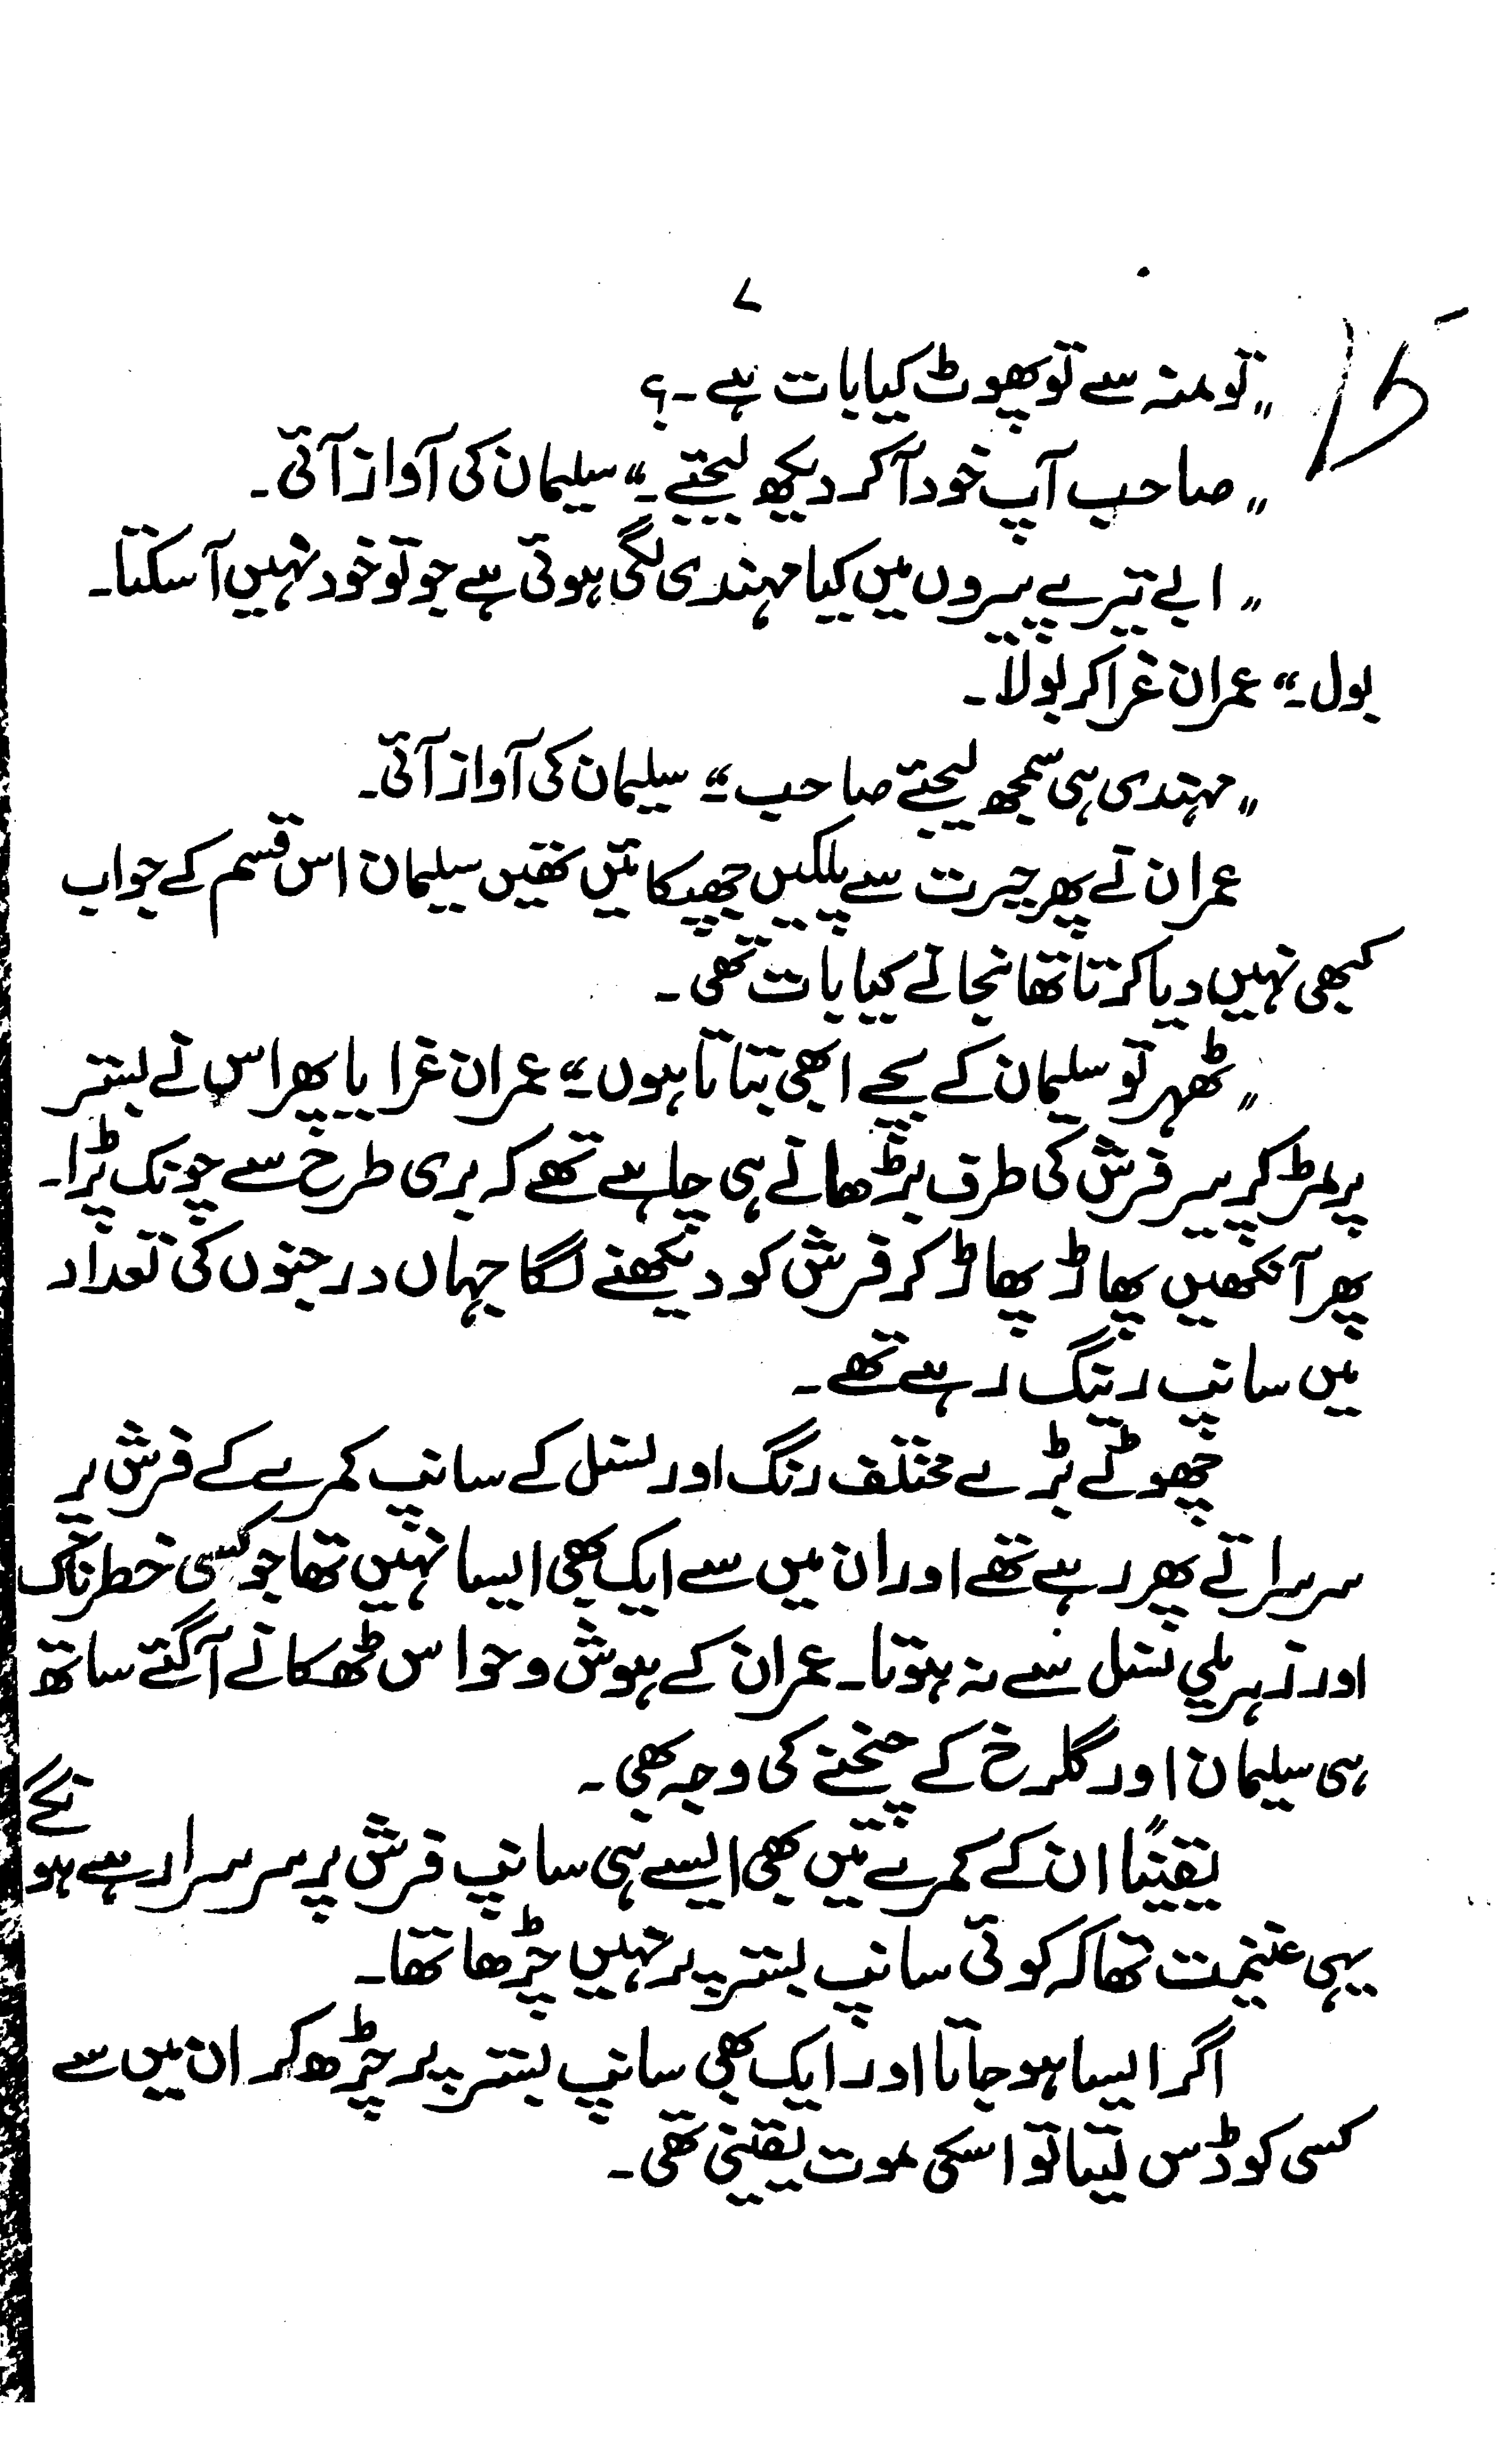 ۷
"تو منہ سے تو پھوٹ کیا بات ہے۔؟
"صاحب آپ خود آکر دیکھ لیجئے۔" سلیمان کی آواز آئی۔
"ابے تیرے پیروں میں کیا مہندی لگی ہوئی ہے جو تو خود نہیں آسکتا۔
بول۔" عمران غرا کر بولا۔
"مہندی ہی سمجھ لیجئے صاحب۔" سلیمان کی آواز آئی۔
عمران نے پھر حیرت سے پلکیں جھپکائیں تھیں سلیمان اس قسم کے جواب
کبھی نہیں دیا کرتا تھا نجانے کیا بات تھی۔
"ٹھہر تو سلیمان کے بچے ابھی بتاتا ہوں۔" عمران غرایا پھر اس نے بستر
پر مڑ کر پیر فرش کی طرف بڑھانے ہی چاہے تھے کہ بری طرح سے چونک پڑا۔
پھر آنکھیں پھاڑ پھاڑ کر فرش کو دیکھنے لگا جہاں درجنوں کی تعداد
میں سانپ رینگ رہے تھے۔
چھوٹے بڑے مختلف رنگ اور نسل کے سانپ کمرے کے فرش پر
سرسراتے پھر رہے تھے اور ان میں سے ایک بھی ایسا نہیں تھا جو کسی خطرناک
اور زہریلی نسل سے نہ ہوتا۔ عمران کے ہوش و حواس ٹھکانے آگئے ساتھ
ہی سلیمان اور گلرخ کے چیخنے کی وجہ بھی۔
یقیناً ان کے کمرے میں بھی ایسے ہی سانپ فرش پر سرسرا رہے ہونگے
یہی غنیمت تھا کہ کوئی سانپ بستر پر نہیں چڑھا تھا۔
اگر ایسا ہو جاتا اور ایک بھی سانپ بستر پر چڑھ کر ان میں سے
کسی کو ڈس لیتا تو اسکی موت یقینی تھی۔